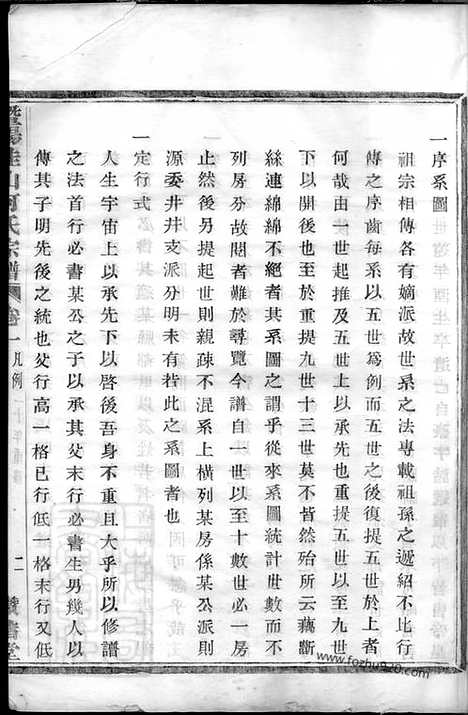 一序系圖
祖宗相傳各有嫡派故世系之法專載祖孫之遞紹不比行
傳之序齒每系以五世爲例而五世之後復提五世於上者
何哉由一世起推及五世以承先也重提五世以至九世
下以開後也至於重提九世十三世莫不皆然殆所云藕斷
絲連綿綿不絕者其系圖之謂乎從來系圖統計世數而不
列房分故閱者難於尋覽今譜自一世以至十數世必一房
止然後另提起世則親疎不混系上橫列某房係某公派則
源委井井支派分明未有若此之系圖者也
一定行式
人生宇宙上以承先下以啓後吾身不重且大乎所以修譜
之法首行必書某公之子以承其父末行必書生男幾人以
傳其子明先後之統也父行高一格已行低一格末行又低
暨陽 山何氏宗譜 卷一凡例 二
www.fozhu920.com